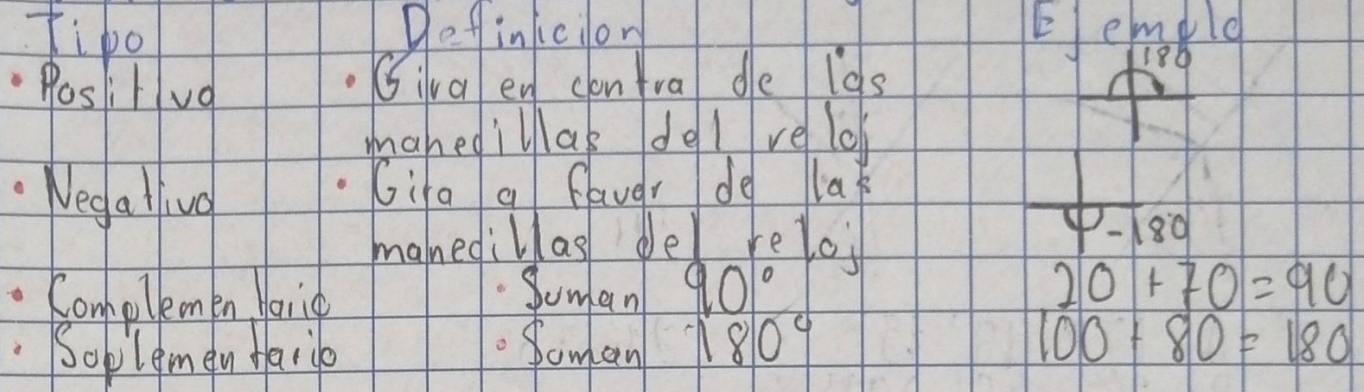 Tipo Definicion Ejemplo
• Positivo • Gira en contra de las 180
manecillas del reloj
• Negativo • Gira a favor de las
manecillas del reloj -180
• Complementario • Suman 90° 20 + 70 = 90
• Soplementario • Suman 180° 100 + 80 = 180